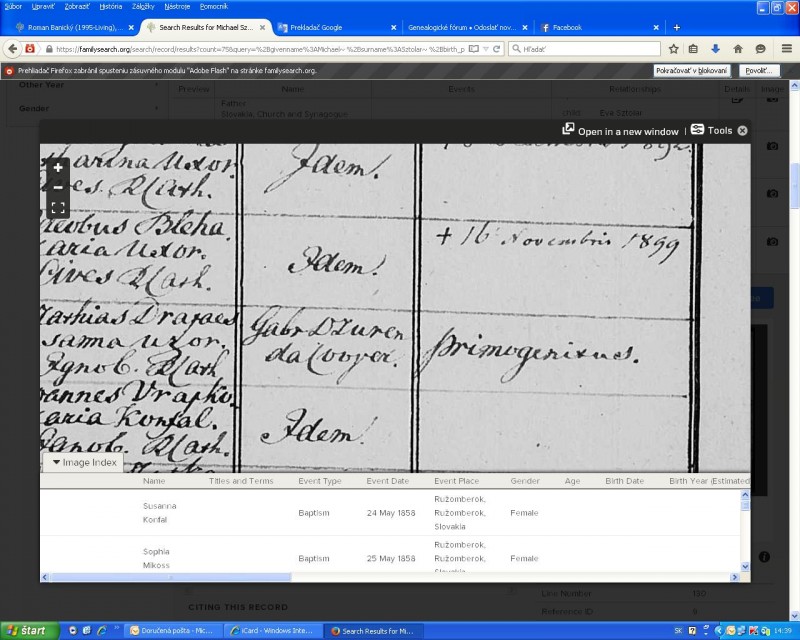 Súbor Upraviť Zobraziť História Záložky Nástroje Pomocník
Roman Banický (1995-Living),...
Search Results for Michael Sz...
Prekladač Google
Genealogické fórum • Odoslať nov...
Facebook
https://familysearch.org/search/record/results?count=75&query=%2Bgivenname%3AMichael~ %2Bsurname%3ASztolar~ %2Bbirth_p
Hľadať
Prehliadač Firefox zabránil spusteniu zásuvného modulu "Adobe Flash" na stránke familysearch.org.
Pokračovať v blokovaní
Povoliť...
Other Year
Gender
Preview Name Events Relationships Details Image
Father
Slovakia, Church and Synagogue
Eva Sztolar
Open in a new window | Tools
Uxor. Idem!
Math.
Bleha. + 16 Novembris 1899
Uxor. Idem!
Cives. Math.
Gabr Dzuren
Uxor. primogenitus.
Ignob. Math
Konfal. Idem!
Ignob. Math.
Image Index
Name Titles and Terms Event Type Event Date Event Place Gender Age Birth Date Birth Year (Estimated
Susanna Konfal Baptism 24 May 1858 Ružomberok, Ružomberok, Slovakia Female
Sophia Mikoss Baptism 25 May 1858 Ružomberok, Ružomberok, Slovakia Female
CITING THIS RECORD
Line Number 130
Reference ID
štart
Doručená pošta - Mic...
iCard - Windows Inte...
Search Results for Mi...
SK
14:39